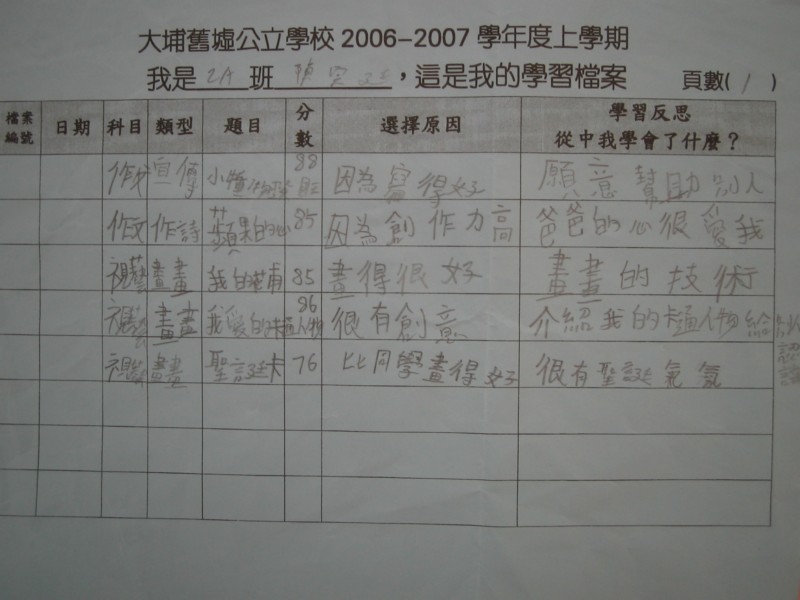 大埔舊墟公立學校 2006-2007 學年度上學期
我是 2A 班 ，這是我的學習檔案 頁數( 1 )
檔案編號 日期 科目 類型 題目 分數 選擇原因 學習反思 從中我學會了什麼？
作文 宣傳 小 88 因為寫得好 願意幫助別人
作文 作詩 蘋果的心 85 因為創作力高 爸爸的心很愛我
視藝 畫畫 我的 85 畫得很好 畫畫的技術
視藝 畫畫 我愛的卡通人物 86 很有創意 介紹我的卡通人物給 認識
視藝 畫畫 聖誕卡 76 比同學畫得好 很有聖誕氣氛